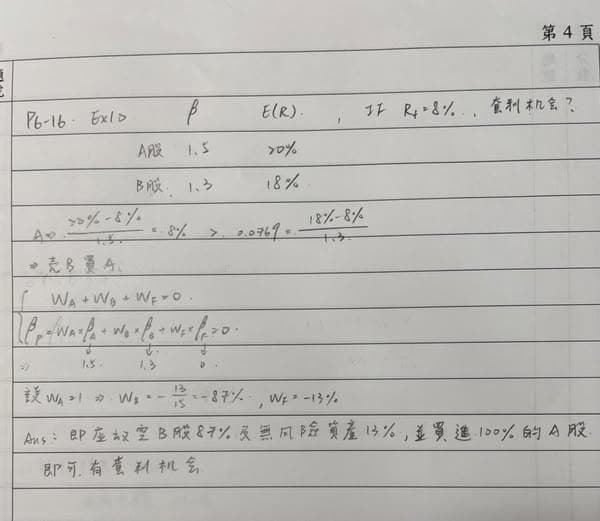 第 4 頁
P6-16. Ex1> β E(R). , IF Rf=8%. , 套利机会?
A股 1.5 20%
B股. 1.3 18%.
A⇒ 20%-8% / 1.5 = 8% > 0.0769 = 18%-8% / 1.3
⇒ 売B買A.
WA + WB + WF = 0.
βp = WA × βA + WB × βB + WF × βF = 0.
⇒ 1.5 1.3 0
設 WA = 1 ⇒ WB = - 13/15 = -87%, WF = -13%
Ans: 即 放空B股87%及無風險資產13%, 並買進100%的A股.
即可有套利机会